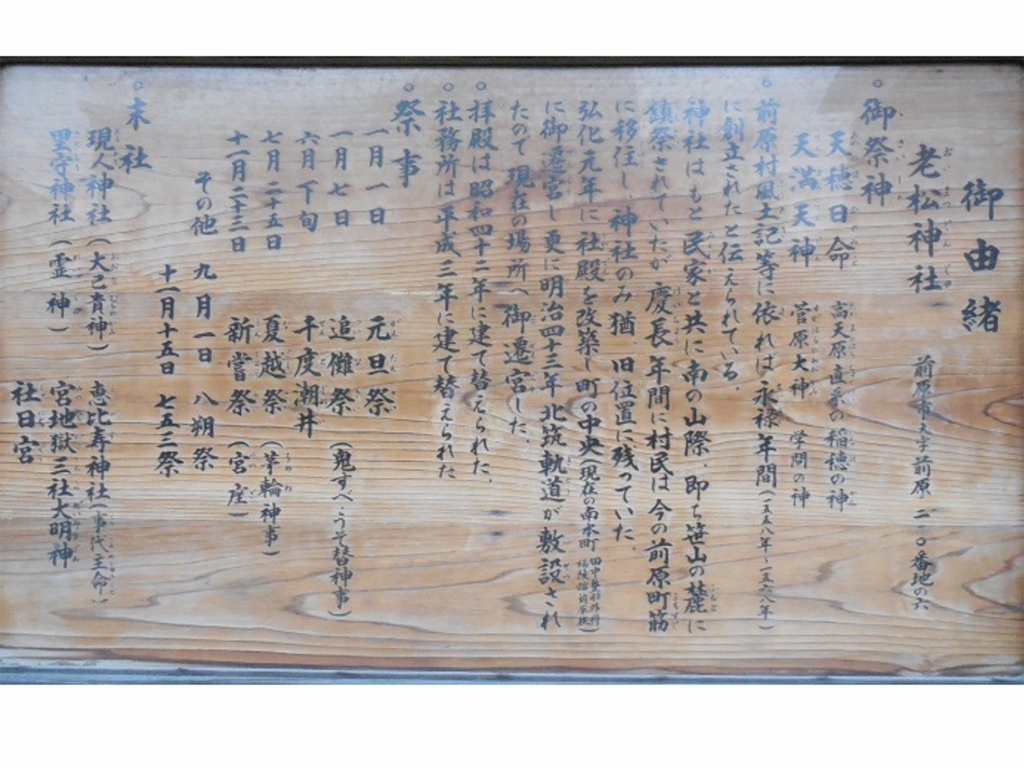 御由緒
老松神社 前原市大字前原 二一〇番地の六
○御祭神
天穂日命 高天原直系の稲穂の神
天満天神 菅原大神 学問の神
○前原村風土記等に依れば永禄年間(一五五八年~一五六八年)
に創立されたと伝えられている。
神社はもと民家と共に南の山際、即ち笹山の麓に
鎮祭されていたが慶長年間に村民は今の前原町筋
に移住し、神社のみ猶、旧位置に残っていた。
弘化元年に社殿を改築し町の中央(現在の南本町)
に御遷宮し更に明治四十三年北筑軌道が敷設され
たので現在の場所へ御遷宮した。
○拝殿は昭和四十二年に建て替えられた。
○社務所は平成三年に建て替えられた
○祭事
一月一日 元旦祭
一月七日 追儺祭(鬼すべ・うそ替神事)
六月下旬 千度潮井
七月二十五日 夏越祭(茅輪神事)
十一月二十三日 新嘗祭(宮座)
その他 九月一日 八朔祭
十一月十五日 七五三祭
○末社
現人神社(大己貴神) 恵比寿神社(事代主命)
里守神社(霊神) 宮地嶽三社大明神
社日宮